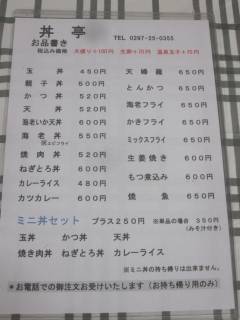 丼亭
お品書き
TEL 0297-25-0355
税込み価格 大盛り+100円 生卵+70円 温泉玉子+70円
玉丼 450円
親子丼 600円
かつ丼 520円
天丼 520円
海老いか天丼 600円
海老丼 550円
焼肉丼 520円
ねぎとろ丼 600円
カレーライス 480円
カツカレー 600円
天婦羅 650円
とんかつ 650円
海老フライ 650円
かきフライ 650円
ミックスフライ 650円
生姜焼き 600円
もつ煮込み 600円
焼魚 650円
ミニ丼セット プラス250円 ※単品の場合 350円
(みそ汁付き)
玉丼 かつ丼 天丼
焼き肉丼 ねぎとろ丼 カレーライス
※ミニ丼の持ち帰りは出来ません。
*お電話での御注文お受けいたします(お持ち帰り用のみ)